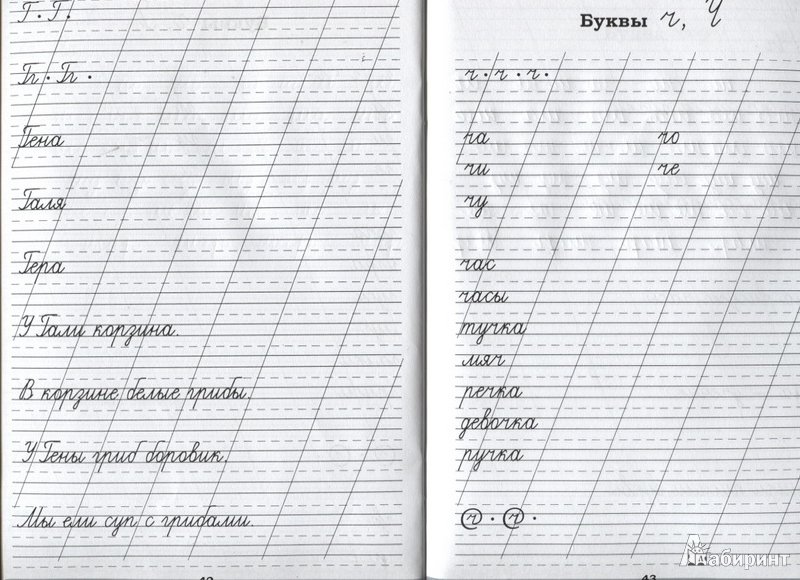 Г. Г.
Гг. Гг.
Гена
Галя
Гера
У Гали корзина.
В корзине белые грибы.
У Гены гриб боровик.
Мы ели суп с грибами.
Буквы ч, Ч
ч. ч. ч.
ча чо
чи че
чу
час
часы
тучка
мяч
речка
девочка
ручка
ч. ч.
43
Лабиринт